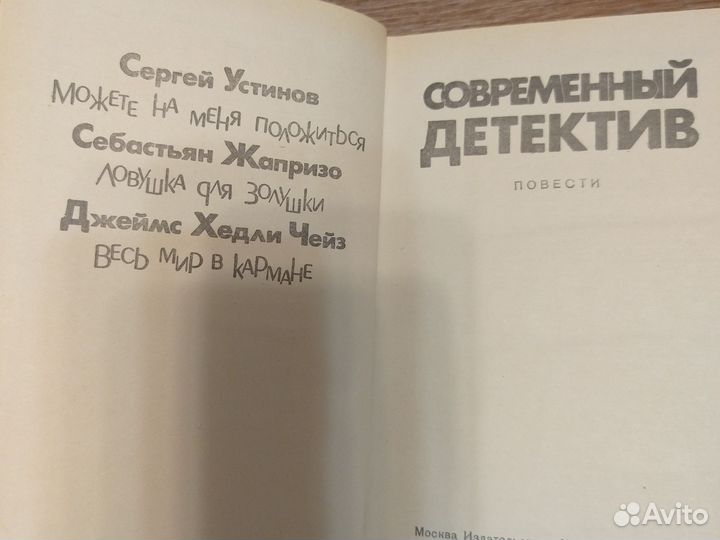 Сергей Устинов
МОЖЕТЕ НА МЕНЯ ПОЛОЖИТЬСЯ
Себастьян Жапризо
ЛОВУШКА ДЛЯ ЗОЛУШКИ
Джеймс Хедли Чейз
ВЕСЬ МИР В КАРМАНЕ
СОВРЕМЕННЫЙ
ДЕТЕКТИВ
ПОВЕСТИ
Москва
Avito